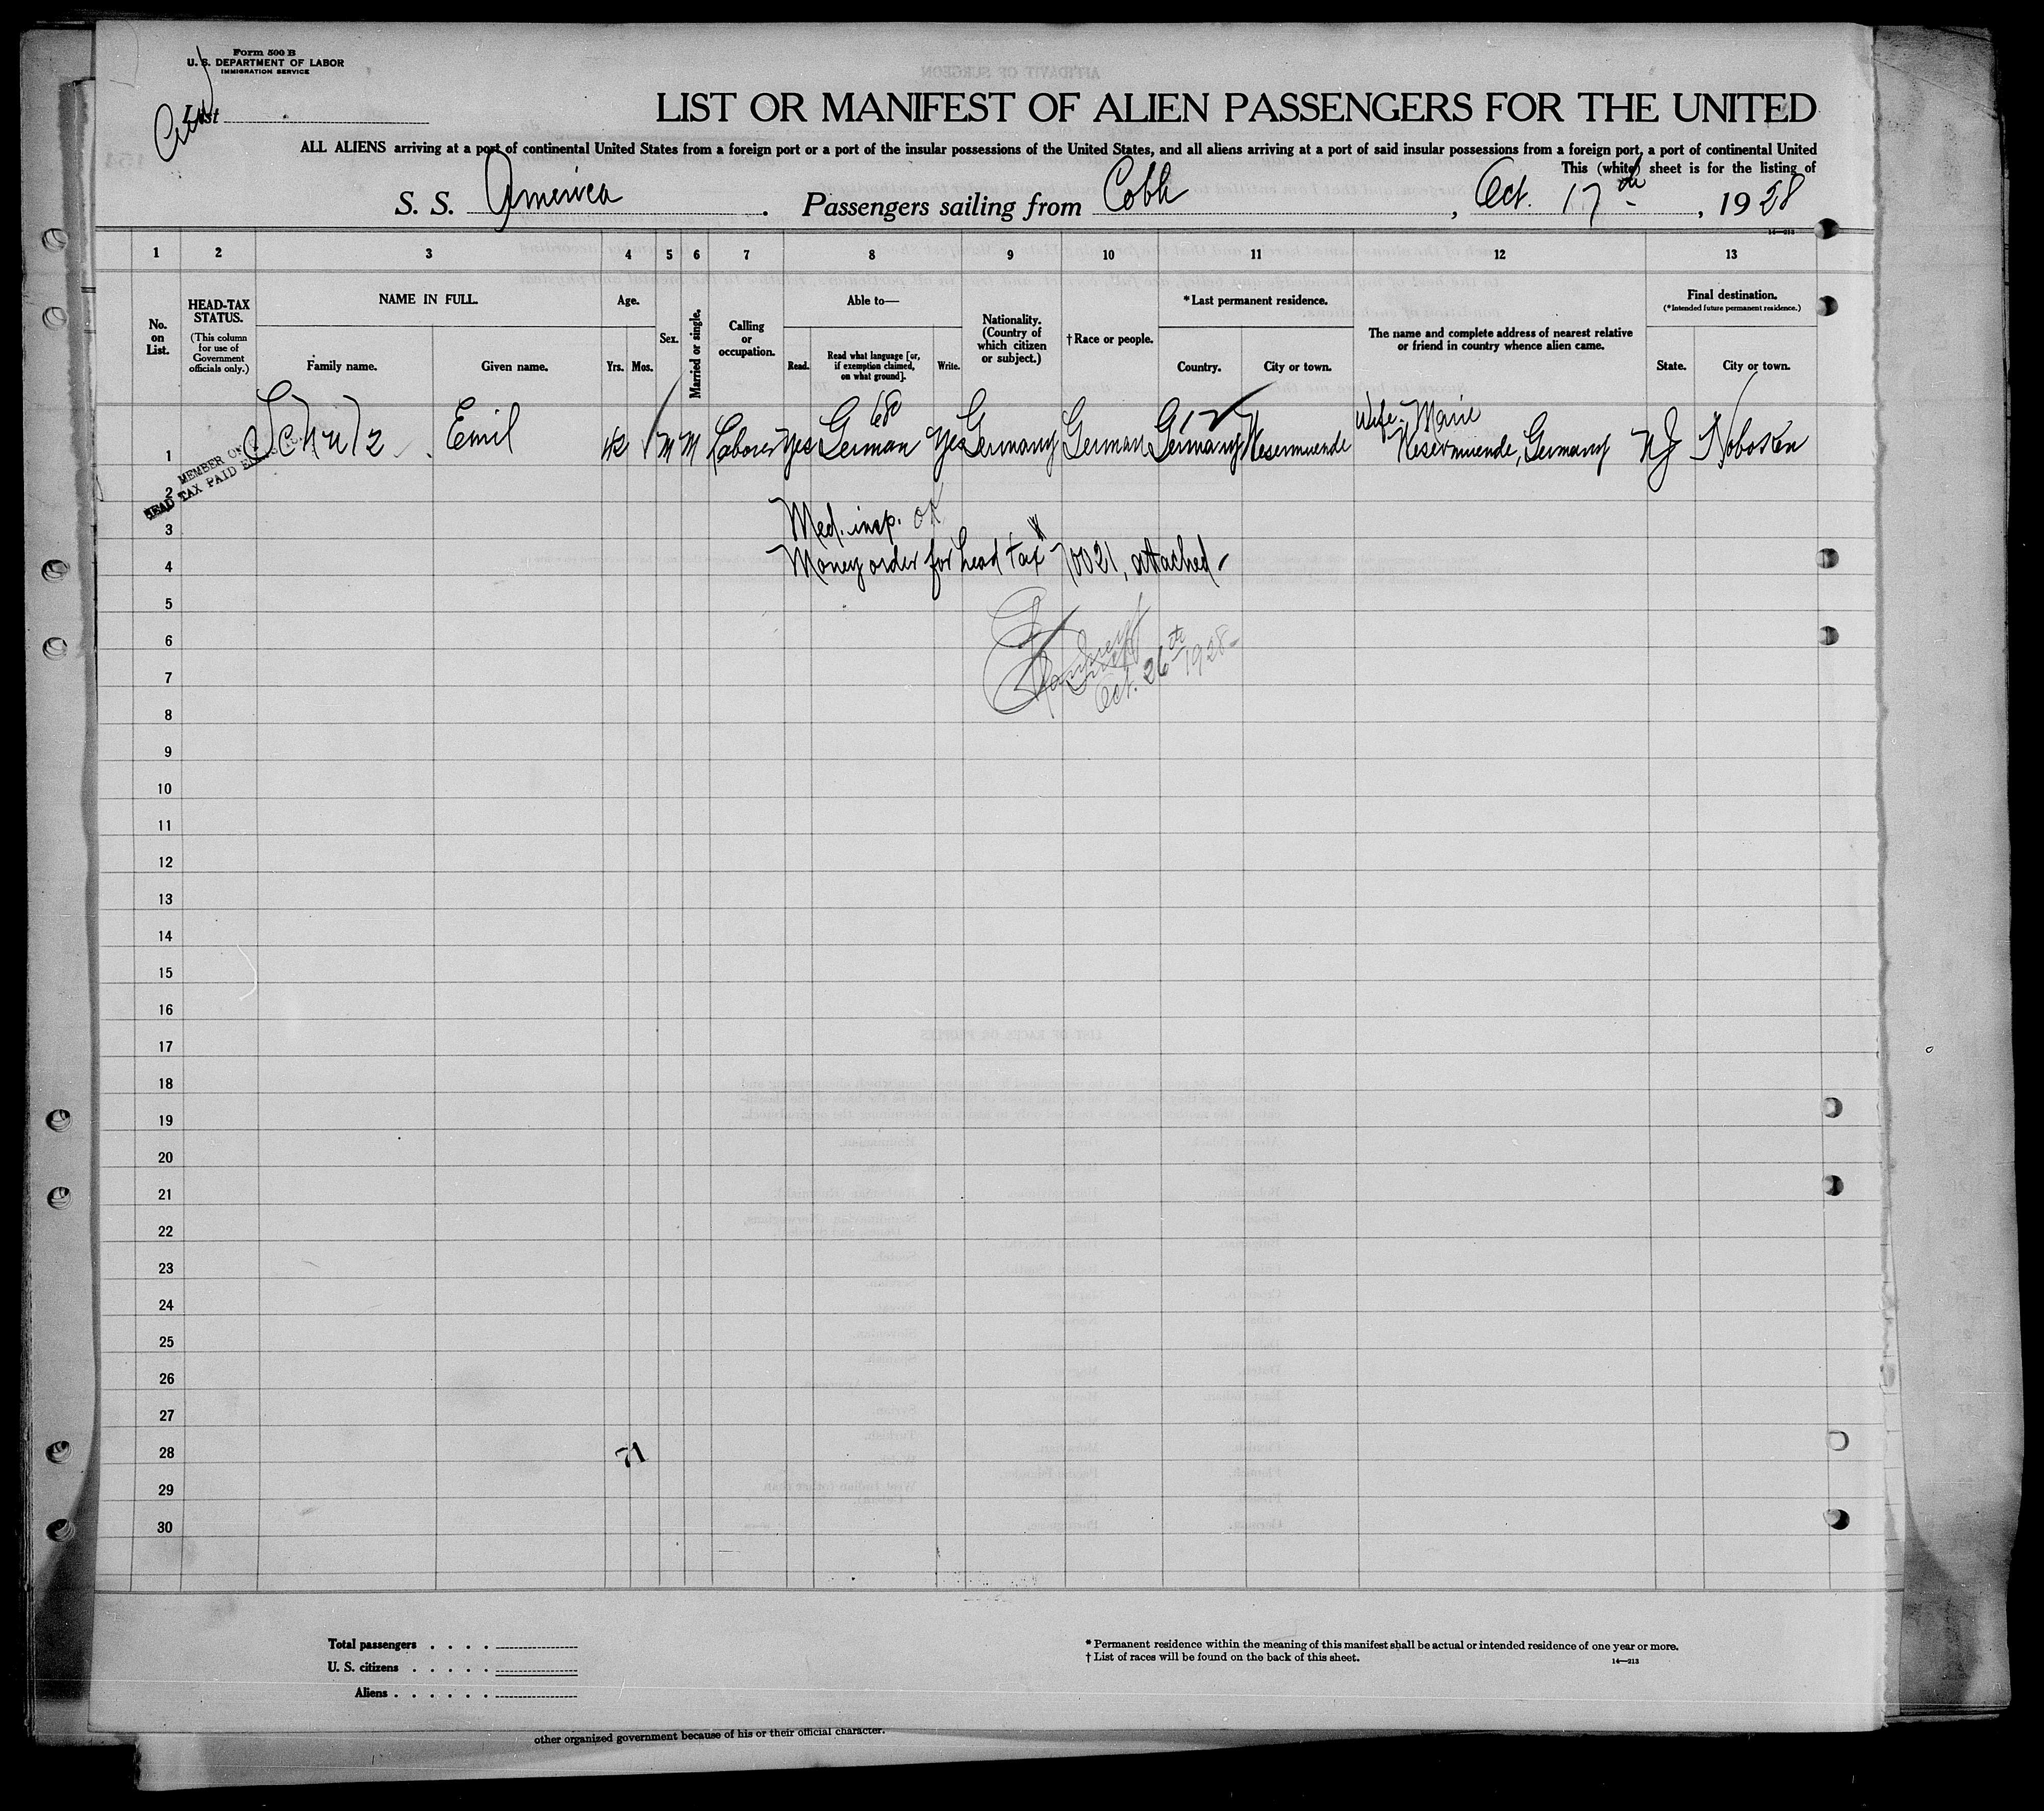 Form 500 B
U. S. DEPARTMENT OF LABOR
IMMIGRATION SERVICE
List
LIST OR MANIFEST OF ALIEN PASSENGERS FOR THE UNITED
ALL ALIENS arriving at a port of continental United States from a foreign port or a port of the insular possessions of the United States, and all aliens arriving at a port of said insular possessions from a foreign port, a port of continental United
This (white) sheet is for the listing of
S. S. America . Passengers sailing from Cobh , Oct. 17th , 1928
14—213
1 2 3 4 5 6 7 8 9 10 11 12 13
No. on List.
HEAD-TAX STATUS.
(This column for use of Government officials only.)
NAME IN FULL.
Family name. Given name.
Age.
Yrs. Mos.
Sex.
Married or single.
Calling or occupation.
Able to—
Read. Read what language [or, if exemption claimed, on what ground]. Write.
Nationality. (Country of which citizen or subject.)
†Race or people.
*Last permanent residence.
Country. City or town.
The name and complete address of nearest relative or friend in country whence alien came.
Final destination.
(*Intended future permanent residence.)
State. City or town.
68
Wife: Marie
1 Schulz Emil 42 M M Laborer Yes German Yes Germany German Germany Wesermuende Wesermuende, Germany NJ Hoboken
MEMBER OF
HEAD TAX PAID
2
3 Med. insp. ok
4 Money order for head tax # 70021, attached
5
6
7 Oct. 26th 1928
8
9
10
11
12
13
14
15
16
17
18
19
20
21
22
23
24
25
26
27
28 71
29
30
Total passengers . . . .
U. S. citizens . . . . .
Aliens . . . . . .
* Permanent residence within the meaning of this manifest shall be actual or intended residence of one year or more.
† List of races will be found on the back of this sheet.
14—213
other organized government because of his or their official character.